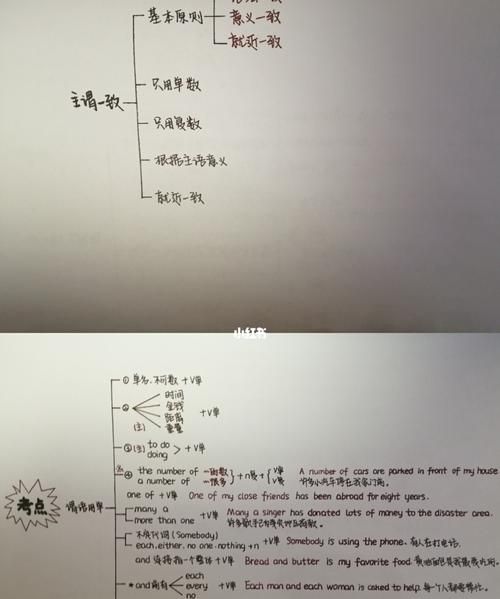 基本原则
意义一致
就近一致
主谓一致
只用单数
只用复数
根据主语意义
就近一致
小红书
① 单名.不可数 + V单
②
时间
金钱
距离
重量
(主)
+V单
③ (主) to do
doing
> +V单
④ the number of 一的数
a number of 一很多
+ n复 + V单
V复
A number of cars are parked in front of my house
许多小汽车停在我家门前。
one of + V单 One of my close friends has been abroad for eight years.
考点
谓语用单
many a
more than one
+V单 Many a singer has donated lots of money to the disaster area.
不定代词 (Somebody)
each.either.no one.nothing + n
+V单 Somebody is using the phone. 有人在打电话.
and 连接指一个整体 + V单 Bread and butter is my favorite food.
★ and 前有
each
every
no
+V单 Each man and each woman is asked to help.